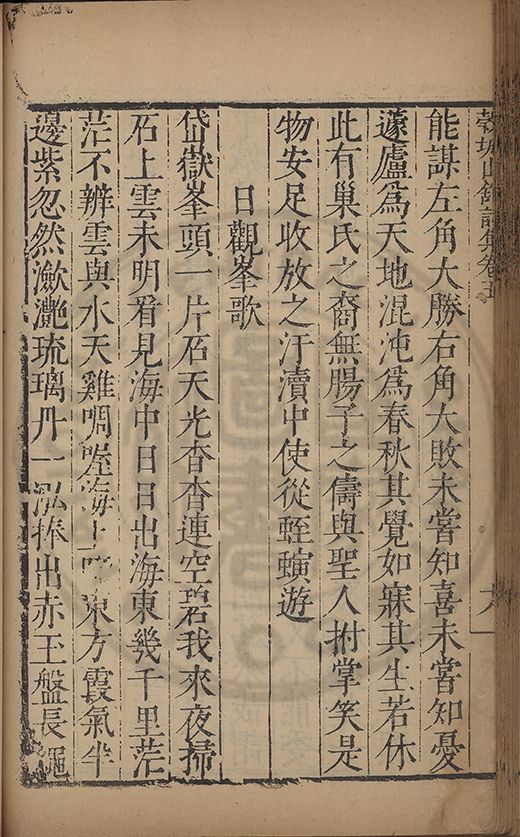 穀城山館詩集卷五
能謀左角大勝右角大敗未嘗知喜未嘗知憂
蘧廬爲天地混沌爲春秋其覺如寐其生若休
此有巢氏之裔無腸子之儔與聖人拊掌笑是
物安足收放之汙瀆中使從蛭螾游
日觀峯歌
岱嶽峯頭一片石天光杳杳連空碧我來夜掃
石上雲未明看見海中日日出海東幾千里茫
茫不辨雲與水天雞啁哳海上東方霞氣半
邊紫忽然瀲灔琉璃丹一泓捧出赤玉盤長